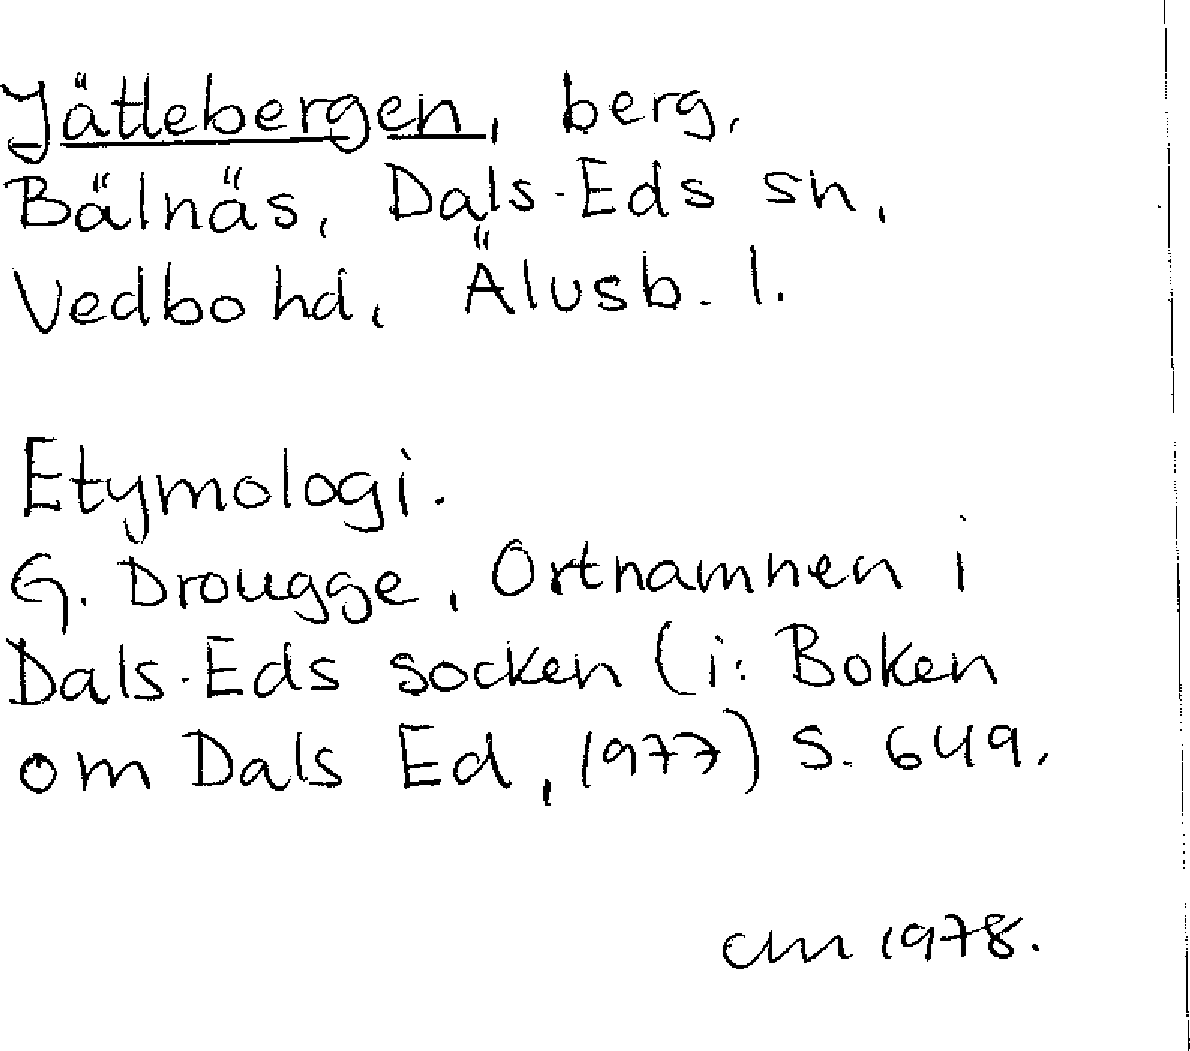 Jättebergen, berg,
Bälnäs, Dals-Eds sn,
Vedbo hd, Älvsb. l.
Etymologi.
G. Drougge, Ortnamnen i
Dals-Eds socken (i: Boken
om Dals Ed, 1977) S. 649.
cm 1978.